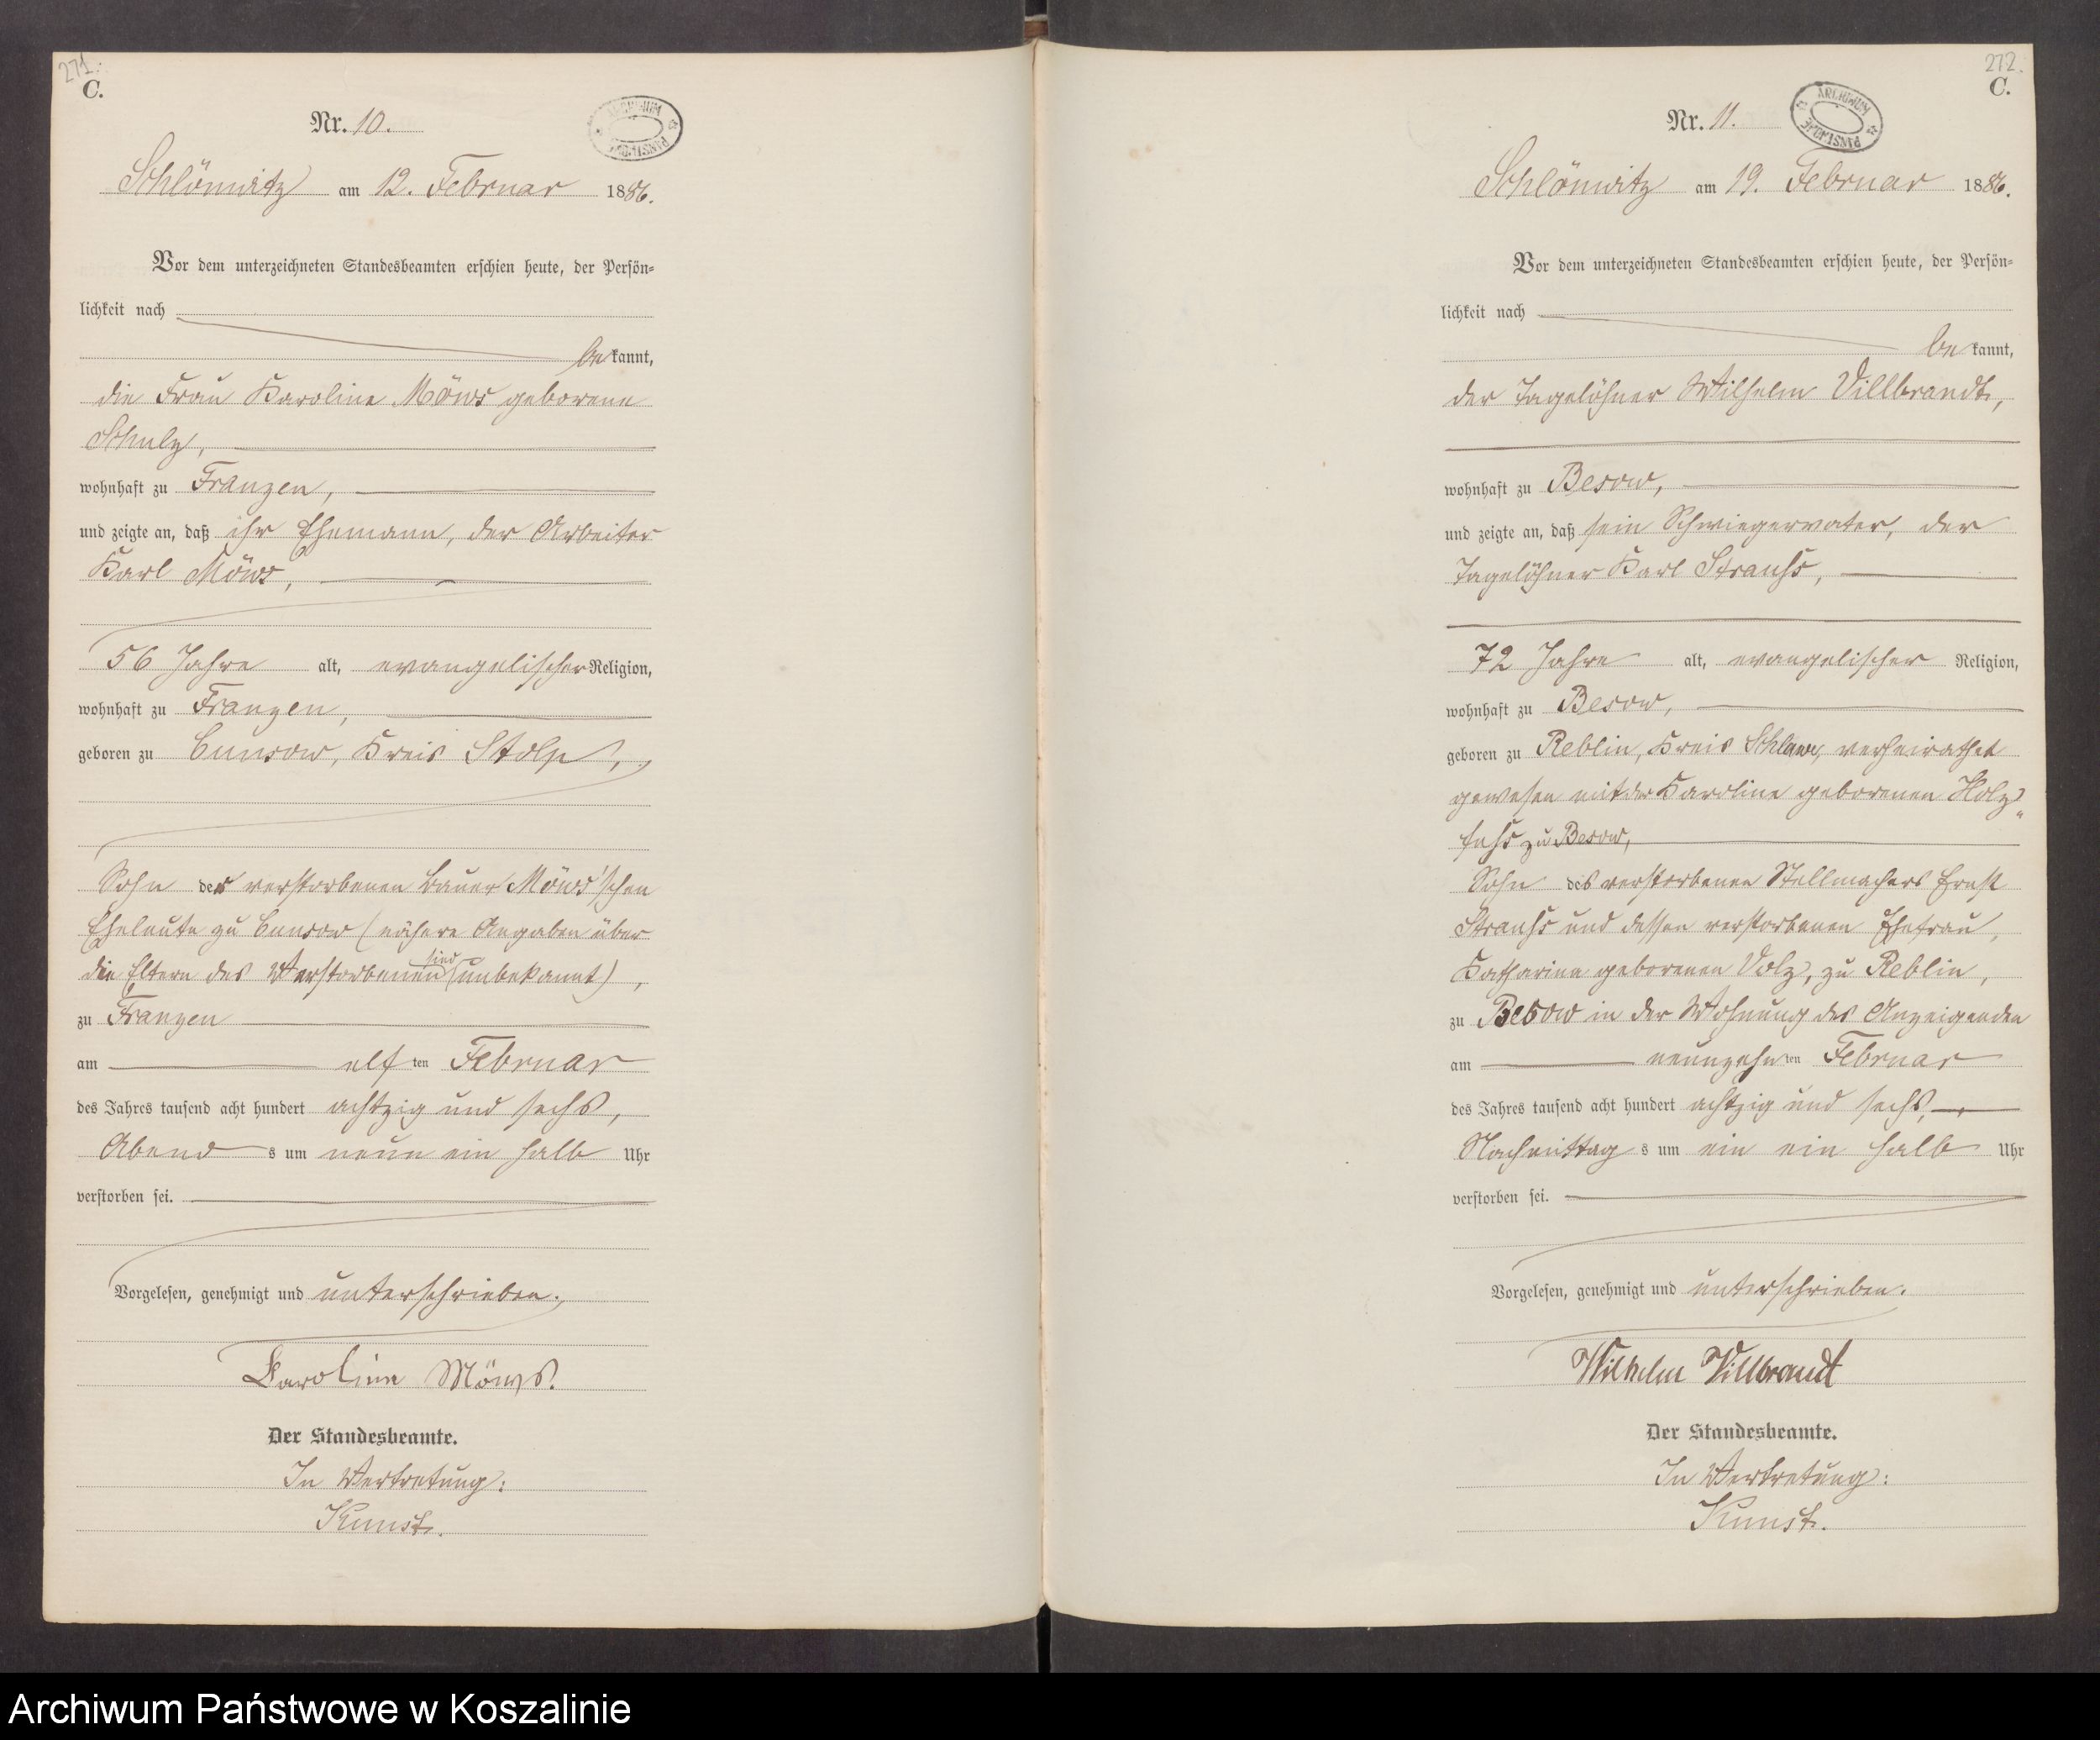 271.
C.
ARCHIWUM PAŃSTWOWE
Nr. 10.
Schlönwitz am 12. Februar 1886.
Vor dem unterzeichneten Standesbeamten erschien heute, der Persön=
lichkeit nach
be kannt,
die Frau Karoline Möws geborene
Schulz,
wohnhaft zu Franzen,
und zeigte an, daß ihr Ehemann, der Arbeiter
Karl Möws,
56 Jahre alt, evangelischer Religion,
wohnhaft zu Franzen,
geboren zu Cunsow, Kreis Stolp,
Sohn der verstorbenen Bauer Möws'schen
Eheleute zu Cunsow (nähere Angaben über
die Eltern des Verstorbenen sind unbekannt),
zu Franzen
am elf ten Februar
des Jahres tausend acht hundert achtzig und sechs,
Abend s um neun ein halb Uhr
verstorben sei.
Vorgelesen, genehmigt und unterschrieben.
Karoline Möws.
Der Standesbeamte.
In Vertretung:
Kunst.
272.
C.
ARCHIWUM PAŃSTWOWE
Nr. 11.
Schlönwitz am 19. Februar 1886.
Vor dem unterzeichneten Standesbeamten erschien heute, der Persön=
lichkeit nach
be kannt,
der Tagelöhner Wilhelm Villbrandt,
wohnhaft zu Besow,
und zeigte an, daß sein Schwiegervater, der
Tagelöhner Karl Strauhs,
72 Jahre alt, evangelischer Religion,
wohnhaft zu Besow,
geboren zu Reblin, Kreis Schlawe, verheirathet
gewesen mit der Karoline geborenen Holz„
fuhs zu Besow,
Sohn des verstorbenen Stellmachers Ernst
Strauhs und dessen verstorbenen Ehefrau,
Katharina geborenen Volz, zu Reblin,
zu Besow in der Wohnung des Anzeigenden
am neunzehn ten Februar
des Jahres tausend acht hundert achtzig und sechs,
Nachmittag s um ein ein halb Uhr
verstorben sei.
Vorgelesen, genehmigt und unterschrieben.
Wilhelm Villbrandt
Der Standesbeamte.
In Vertretung:
Kunst.
Archiwum Państwowe w Koszalinie